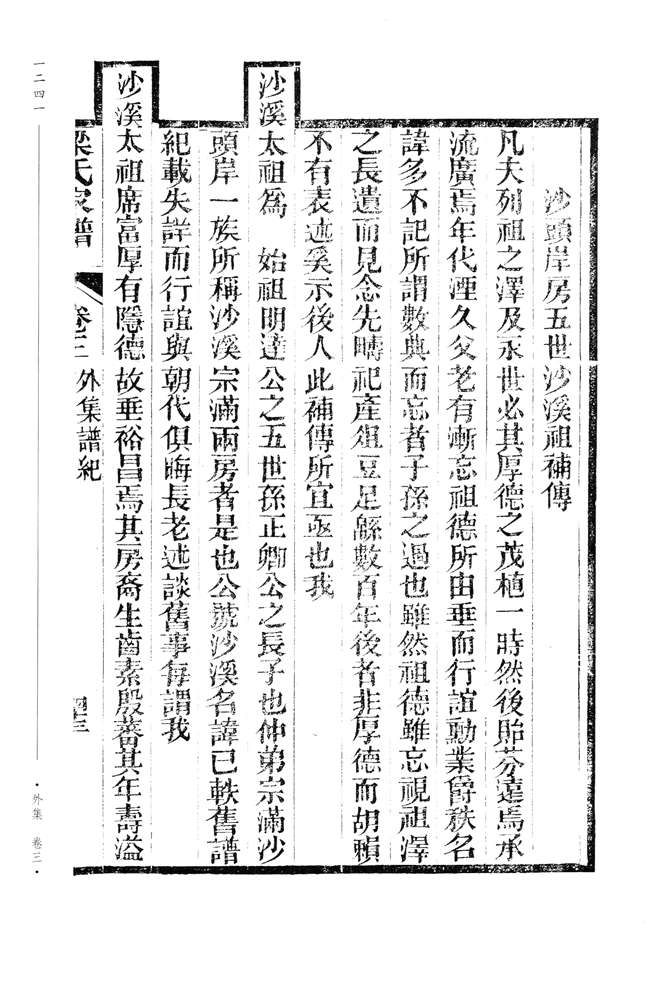 沙頭岸房五世沙溪祖補傳
凡夫列祖之澤及永世必其厚德之茂植一時然後貽芬遠焉承
流廣焉年代湮久父老有漸忘祖德所由垂而行誼勳業爵秩名
諱多不記所謂數典而忘者子孫之過也雖然祖德雖忘視祖澤
之長遺而見念先疇祀產俎豆足繇數百年後者非厚德而胡賴
不有表述奚示後人此補傳所宜亟也我
沙溪太祖爲 始祖明達公之五世孫正卿公之長子也仲弟宗滿沙
頭岸一族所稱沙溪宗滿兩房者是也公號沙溪名諱已軼舊譜
紀載失詳而行誼與朝代俱晦長老述談舊事每謂我
沙溪太祖席富厚有隱德故垂裕昌焉其房裔生齒素殷蕃其年壽溢
梁氏家譜 卷三 外集譜紀 四三
一二四一
·外集 卷三·